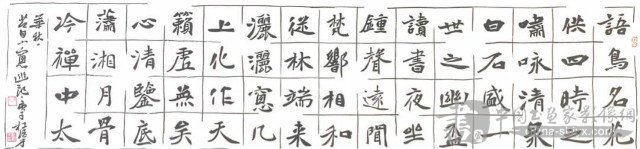 語鳥名花
供四時之
嘯咏清泉
白石盛一
世之幽盃
讀書夜坐
鍾聲遠聞
梵響相和
從林端来
灑灑窻几
上化作天
籟虛無矣
心清鑒底
瀟湘月骨
冷禪中太
華秋